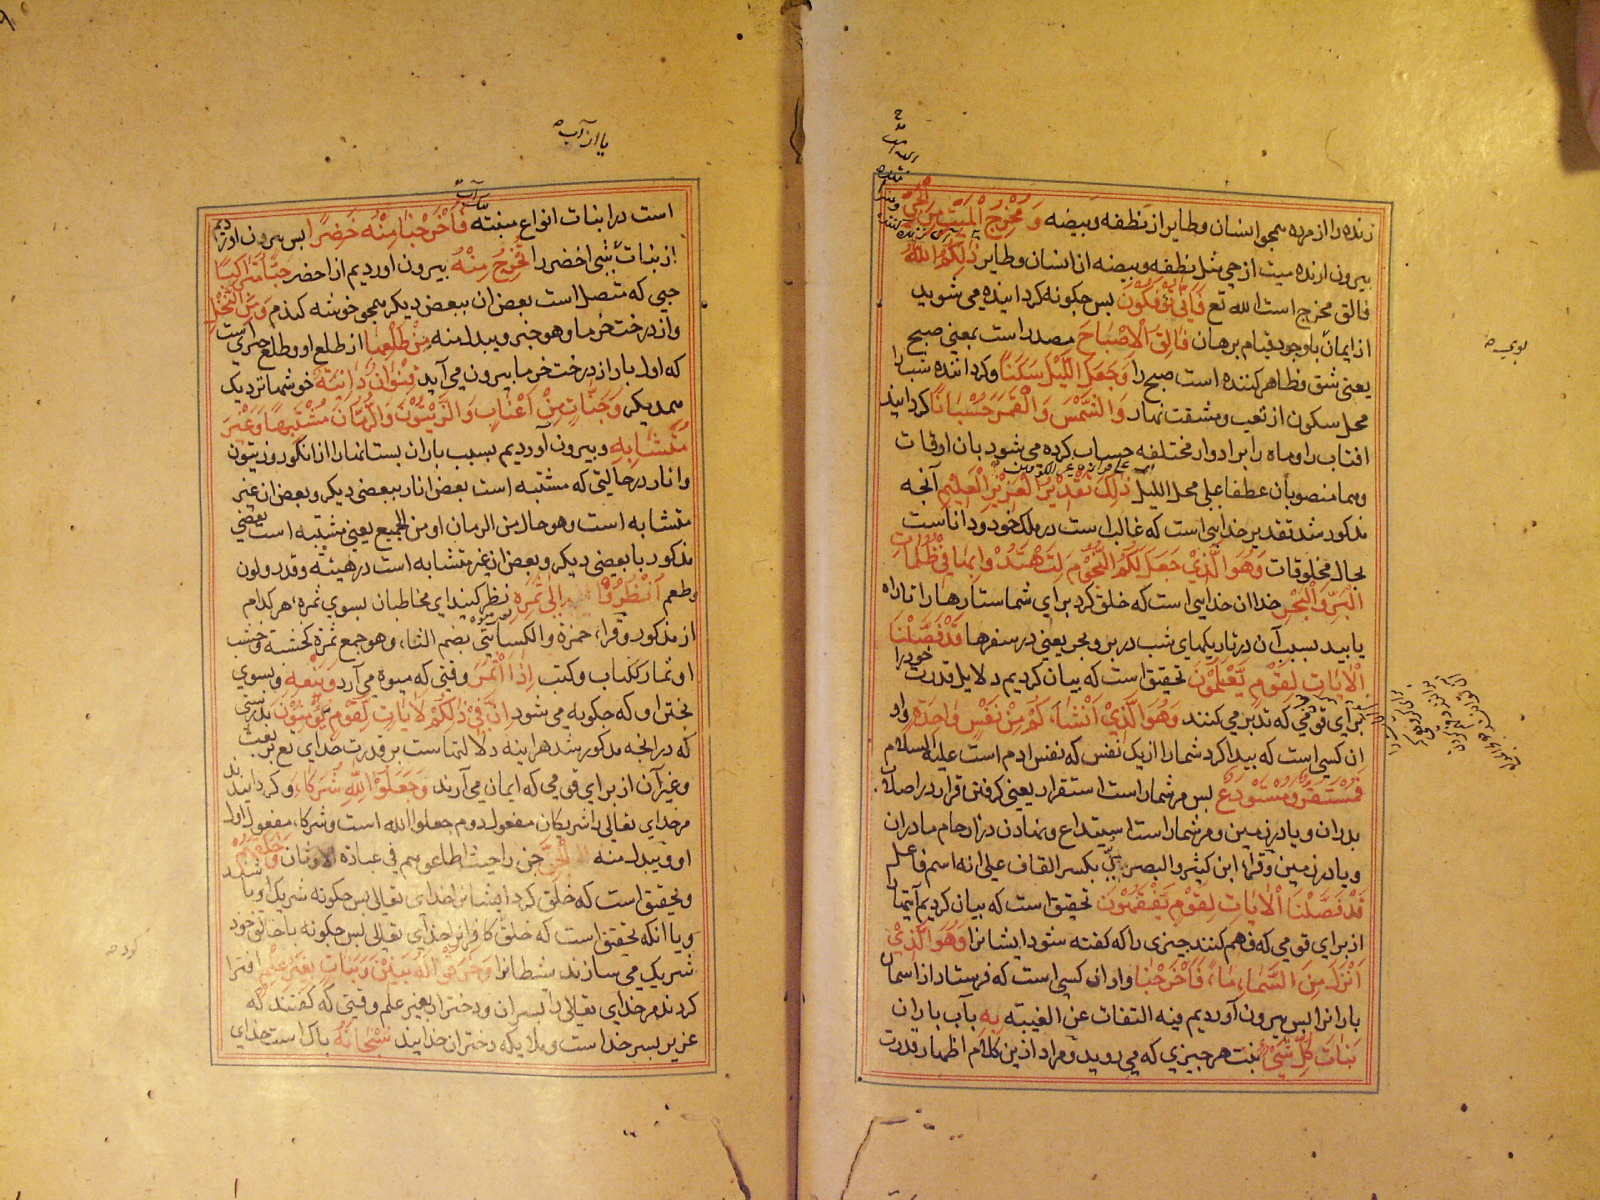 زنده را از مرده همچو انسان و طایر از نطفه و بیضه وَ مُخْرِجُ الْمَیِّتِ مِنَ الْحَیِّ و
بیرون ارنده میت از حی مثل نطفه و بیضه از انسان و طایر ذٰلِکُمُ اللّٰهُ
فالق مخرج است الله تع فَاَنّٰی تُؤْفَکُوْنَ پس چکونه کردانیده می شوید
از ایمان با وجود قیام برهان فَالِقُ الْاِصْبَاحِ مصدر است بمعنی صبح
یعنی شق و ظاهر کننده است صبح را وَجَعَلَ اللَّیْلَ سَکَنًا و کرداننده شب را
محل سکون از تعب و مشقت نهار وَالشَّمْسَ وَالْقَمَرَ حُسْبَانًا کردانید
افتاب را و ماه را بر ادوار مختلفه حساب کرده می شود بان اوقات
وهما منصوبان عطفا علی محل اللیل ذٰلِکَ تَقْدِیْرُ الْعَزِیْزِ الْعَلِیْمِ آنچه
مذکور شد تقدیر خدایی است که غالب است در ملک خود و دانا است
بحال مخلوقات وَهُوَ الَّذِیْ جَعَلَ لَکُمُ النُّجُوْمَ لِتَهْتَدُوْا بِهَا فِیْ ظُلُمَاتِ
الْبَرِّ وَالْبَحْرِ خدا ان خدایی است که خلق کرد برای شما ستارها را تا راه
یابید بسبب آن در تاریکیهای شب در بر و بحر یعنی در سفرها قَدْ فَصَّلْنَا
الْاٰیَاتِ لِقَوْمٍ یَّعْلَمُوْنَ تحقیق است که بیان کردیم دلایل قدرت خود را
برای قومی که تدبر می کنند وَهُوَ الَّذِیْ اَنْشَاَءَکُمْ مِنْ نَفْسٍ وَاحِدَةٍ و او
ان کسی است که پیدا کرد شما را از یک نفس که نفس ادم است علیه السلام
فَمُسْتَقَرٌّ وَمُسْتَوْدَعٌ پس مر شما را است استقرار یعنی کرفتن قرار در اصلاب
پدران و یا در زمین و مر شما را است استیداع و نهادن در ارحام مادران
و یا در زمین و قرا ابن کثیر و البصری بکسر القاف علی انه اسم فاعل
قَدْ فَصَّلْنَا الْاٰیَاتِ لِقَوْمٍ یَّفْقَهُوْنَ تحقیق است که بیان کردیم آیتها
از برای قومی که فهم کنند چیزی را که کفته شود ایشانرا وَهُوَ الَّذِیْ
اَنْزَلَ مِنَ السَّمَاءِ مَاءً فَاَخْرَجْنَا و او ان کسی است که فرستاد از اسمان
بارانرا پس بیرون آوردیم فیه التفات عن الغیبة بِهٖ بآب باران
نَبَاتَ کُلِّ شَیْءٍ نبت هر چیزی که می روید و مراد ازین کلام اظهار قدرت
بوی
یا ان آب
است در انبات انواع منبته فَاَخْرَجْنَا مِنْهُ خَضِرًا پس بیرون اوردیم
از نبات شی اخضر را نُّخْرِجُ مِنْهُ بیرون اوردیم از اخضر حَبًّا مُّتَرَاکِبًا
حبی که متصل است بعض ان ببعض دیکر همچو خوشه کندم وَمِنَ النَّخْلِ
و از درخت خرما وهو خبر و یبدل منه مِنْ طَلْعِهَا از طلع او و طلع چیزی است
که اول بار از درخت خرما بیرون می آید قِنْوَانٌ دَانِیَةٌ خوشها نزدیک
همدیکر وَجَنّٰتٍ مِنْ اَعْنَابٍ وَالزَّیْتُوْنَ وَالرُّمَّانَ مُشْتَبِهًا وَغَیْرَ
مُتَشَابِهٍ و بیرون آوردیم بسبب باران بستانها را از انکور و زیتون
و انار در حالتی که مشتبه است بعض انار ببعضی دیکر و بعض ان غیر
متشابه است وهو حال من الرمان او من الجمیع یعنی مشتبه است بعضی
مذکور با بعضی دیکر و بعض ان غیر متشابه است در هیئة و قدر و لون
و طعم اُنْظُرُوْا اِلٰی ثَمَرِهٖ نظر کنید ای مخاطبان بسوی ثمره هر کدام
از مذکور و قراء حمزة والکسائی بضم الثاء وهو جمع ثمرة کخشبة وخشب
او ثمار ککتاب وکتب اِذَا اَثْمَرَ وقتی که میوه می آرد وَیَنْعِهٖ و بسوی
پختن او که چکونه می شود اِنَّ فِیْ ذٰلِکُمْ لَاٰیَاتٍ لِّقَوْمٍ یُّؤْمِنُوْنَ بدرستی
که در انچه مذکور شد هراینه دلالتها است بر قدرت خدای تع بر بعث
و غیر آن از برای قومی که ایمان می آرند وَجَعَلُوْا لِلّٰهِ شُرَکَاءَ و کردانیدند
مر خدای تعالی را شریکان مفعول دوم جعلوا الله است و شرکاء مفعول اول
او و یبدل منه الْجِنَّ جن را حیث اطاعوهم فی عبادة الاوثان وَخَلَقَهُمْ
و تحقیق است که خلق کرد ایشانرا خدای تعالی پس چکونه شریک او باشند
و یا انکه تحقیق است که خلق کافرانرا خدای تعالی پس چکونه با خالق خود
شریک می سازند شیطانرا وَخَرَقُوْا لَهٗ بَنِیْنَ وَبَنَاتٍ بِغَیْرِ عِلْمٍ افترا
کردند مر خدای تعالی را پسران و دختران بغیر علم وقتی که کفتند که
عزیر پسر خدا است و ملایکه دختران خدایند سُبْحَانَهٗ پاک است خدای